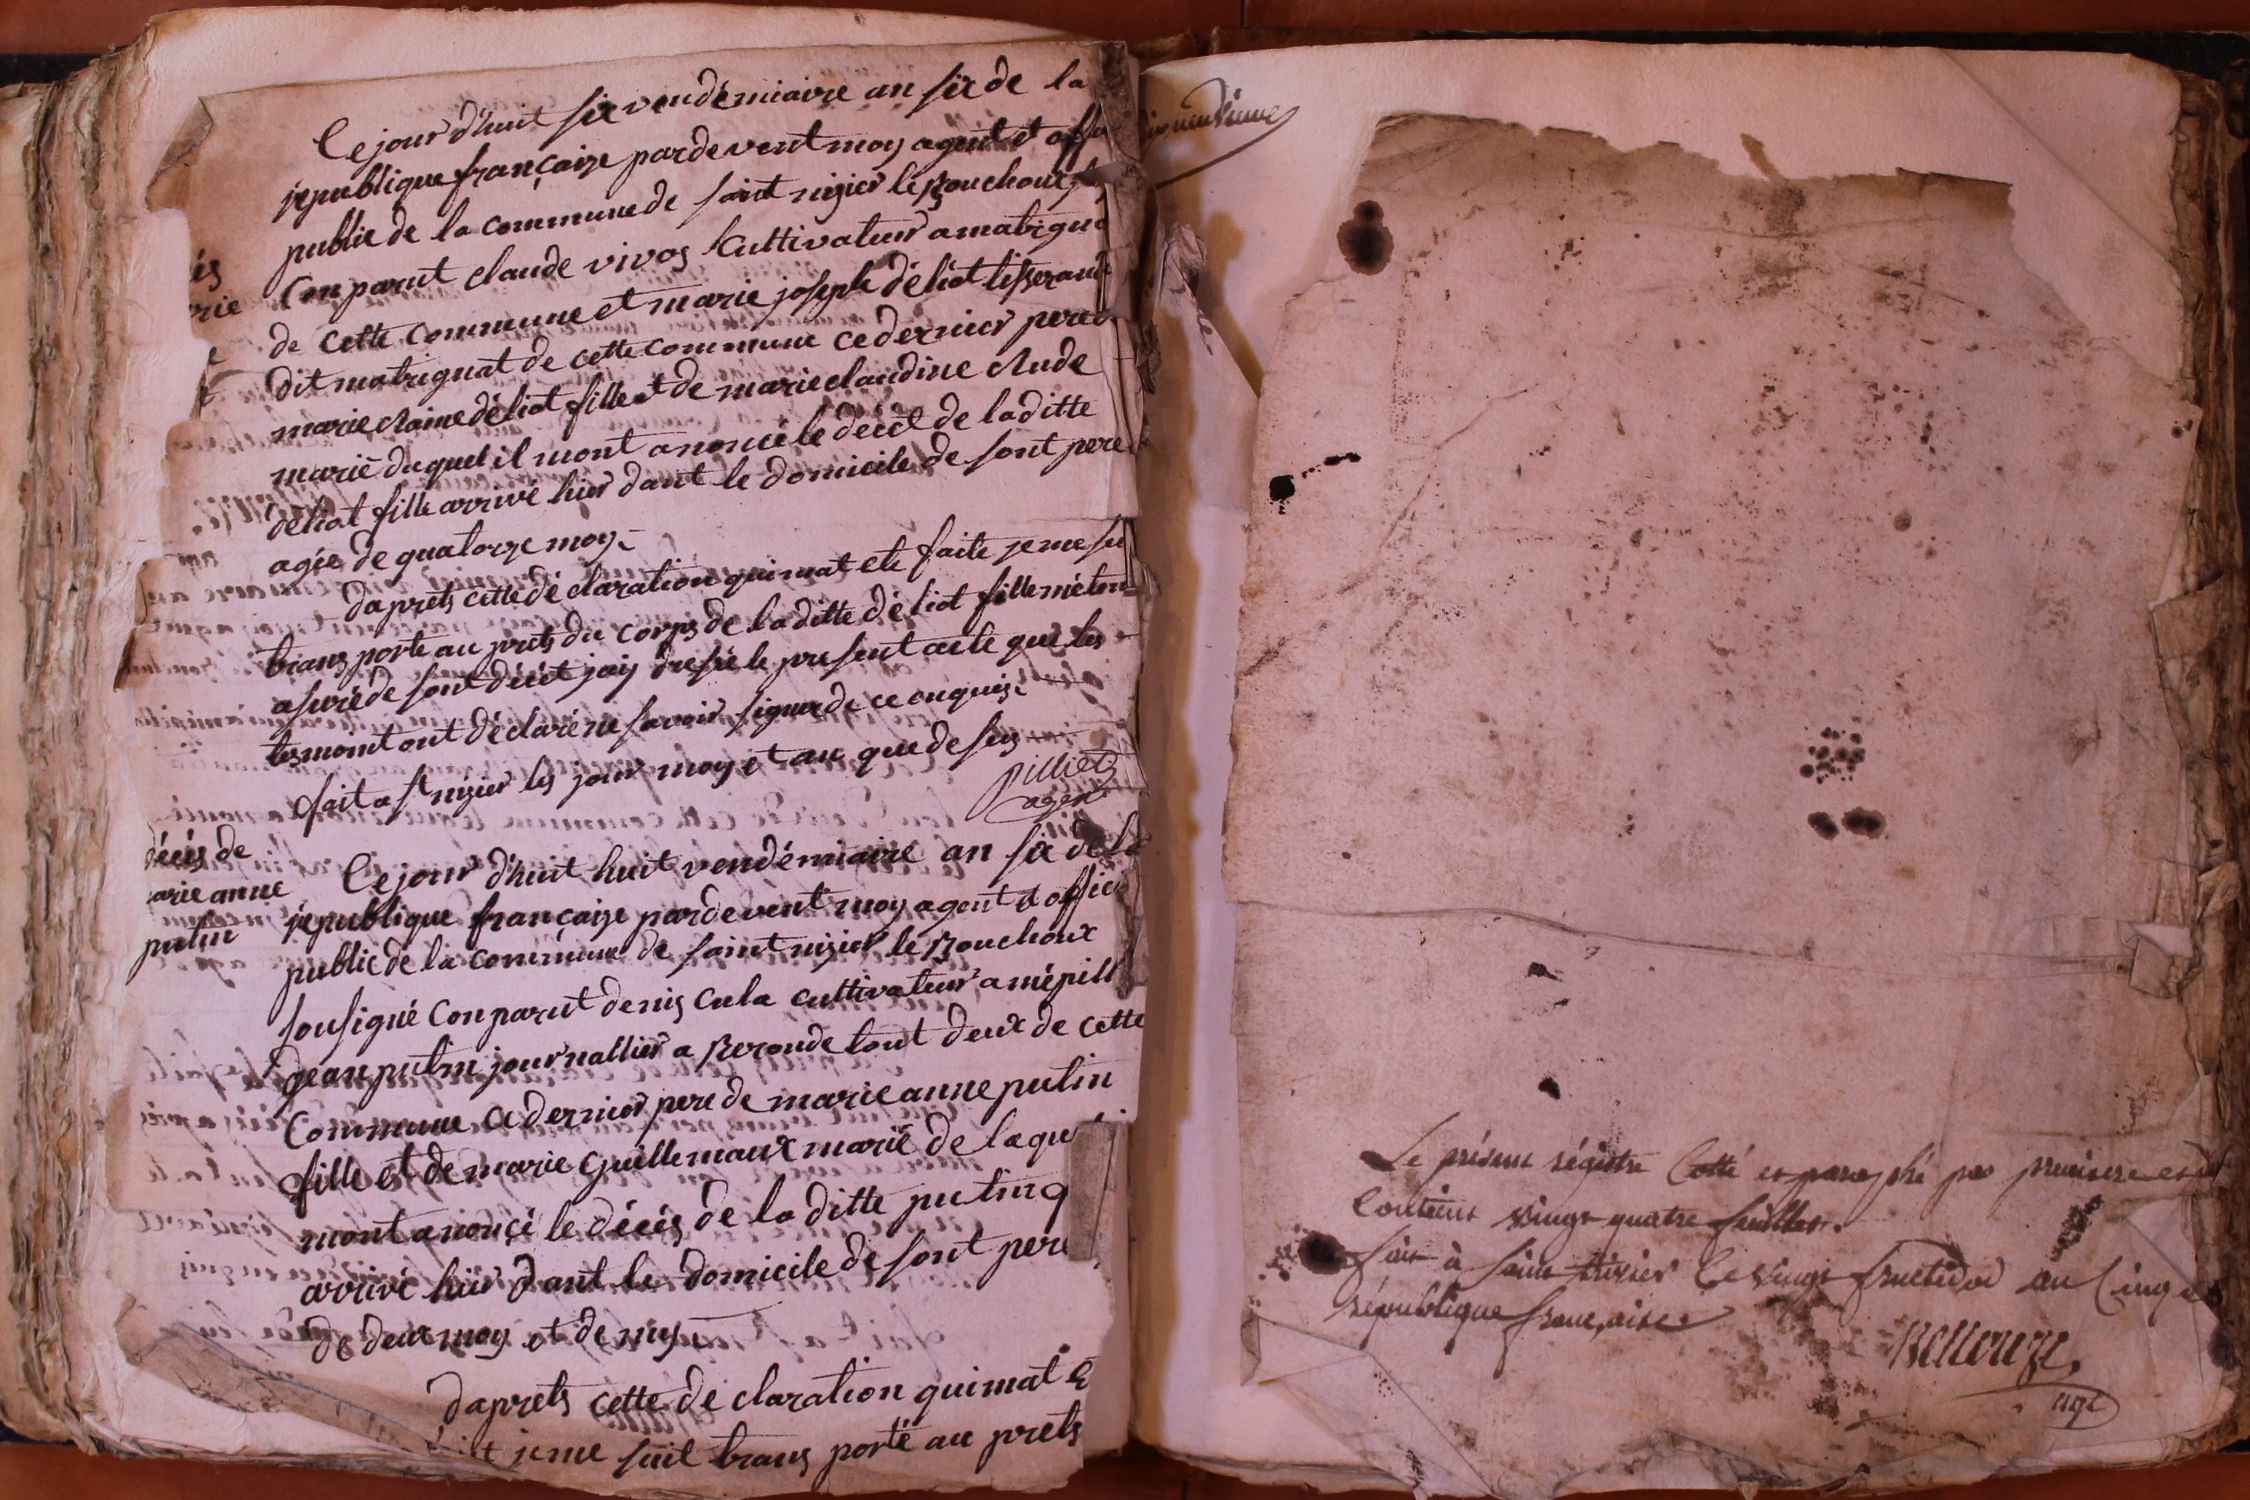 Ce jour d'huit six vendémiaire an six de la
republique françaize pardevent moy agent et offi
public de la commune de saint nizier le Bouchoux
Conparut claude vivos Cultivateur a matrigna
de cette commune et marie joseph déliat tisserand
dit matrignat de cette commune ce dernier pere
marie claine déliat fille et de marie claudine Clude
marié duquel il mont anoncé le décét de laditte
déliat fille arrivé hier dant le domicile de sont pere
agée de quatorze moy
daprets cette déclaration qui mat eté faite je me su
trans porte au prets du corps de laditte déliat fille méten
asuré de sont décét jaij dresé le present acte que les
tesmoint ont déclaré ne savoir signer de ce enquis
fait a st nizier les jour moy et an que desus
pilliet
agent
décés de
arie anne
putin
Ce jour d'huit huit vendémiaire an six de la
republique françaize pardevent moy agent et offici
public de la commune de saint nizier le Bouchoux
sousigné Conparut denis Cula cultivateur a mépill
gean putin journallier a Beronde tout deux de cette
Commune ce dernier pere de marie anne putin
fille et de marie Guillemaux marié de laquel
mont anonçé le décés de la ditte putin q
arrivé hier dant le domicile de sont pere
de deux moy et demy
daprets cette de claration qui mat é
je me suit trans porté au prets
Le présent régistre Cotté et paraphé par premiere et d
Contient vingt quatre feuillets.
fait à saint trivier le vingt fructidor an Cinq de
république française
Bellouze
agt